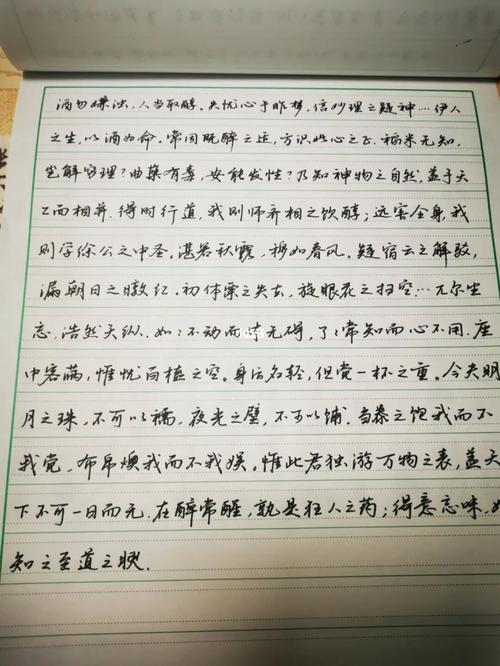 酒勿嫌浊，人当取醇。失忧心于昨梦，信妙理之疑神…伊人
之生，以酒为命。常因既醉之适，方识此心之正。稻米无知，
岂解穷理？曲蘖有毒，安能发性？乃知神物之自然，盖于天
工而相并。得时行道，我则师齐相之饮醇；远害全身，我
则学徐公之中圣。湛若秋露，穆如春风。疑宿云之解驳，
漏朝日之暾红。初体粟之失去，旋眼花之扫空…兀尔坐
忘，浩然天纵。如：不动而体无碍，了：常知而心不用。座
中客满，惟忧百榼之空。身后名轻，但觉一杯之重。今夫明
月之珠，不可以襦，夜光之璧，不可以餔。刍豢之饱我而不
我觉，布帛燠我而不我娱。惟此君独游万物之表，盖天
下不可一日而无。在醉常醒，孰是狂人之药；得意忘味，始
知之至道之腴.